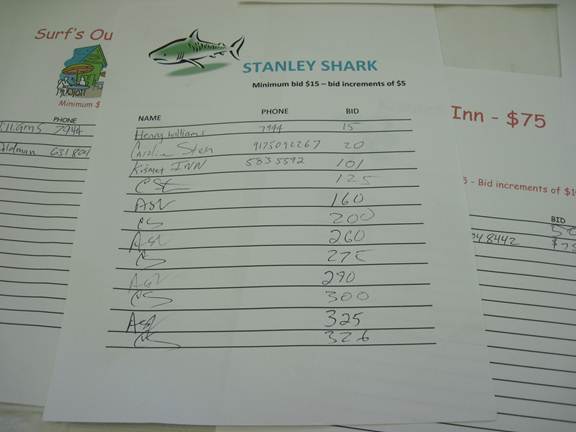 Surf's Ou
Minimum $
PHONE
7944
STANLEY SHARK
Minimum bid $15 – bid increments of $5
NAME PHONE BID
Henry Williams 7944 15
Caroline 9175092267 20
Kismet INN 5835592 101
CS 125
ASV 160
CS 200
260
CS 275
290
CS 300
325
CS 326
Inn - $75
- Bid increments of $1
BID
48442